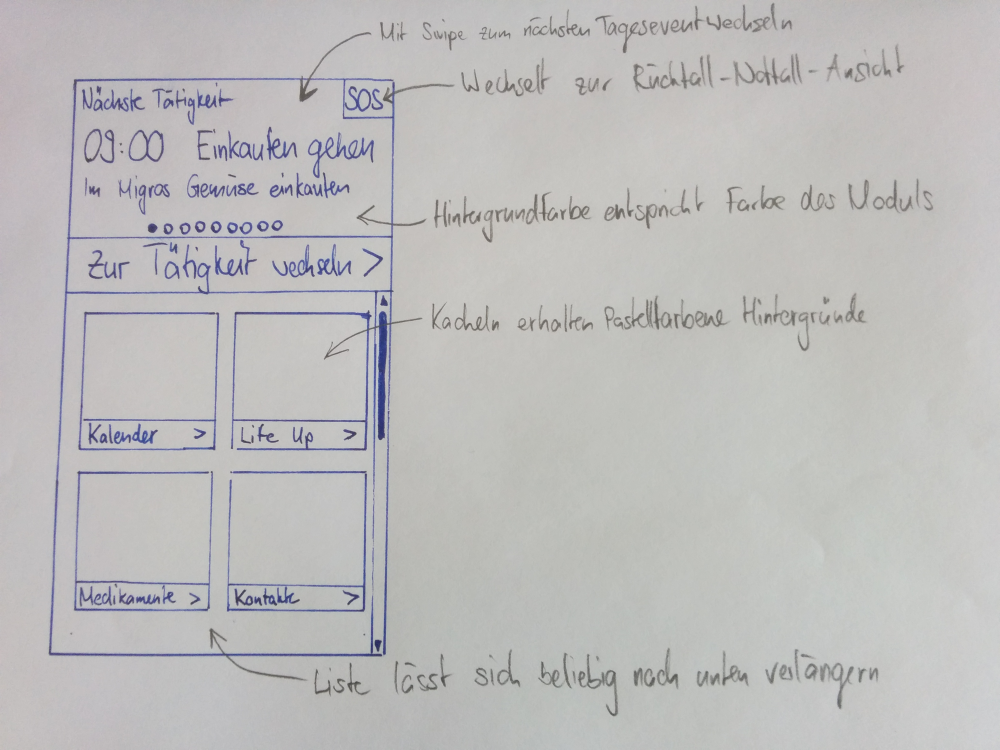 Mit Swipe zum nächsten Tagesevent wechseln
Wechselt zur Rückfall-Notfall-Ansicht
Nächste Tätigkeit
SOS
09:00 Einkaufen gehen
Im Migros Gemüse einkaufen
Hintergrundfarbe entspricht Farbe des Moduls
Zur Tätigkeit wechseln >
Kacheln erhalten Pastellfarbene Hintergründe
Kalender >
Life Up >
Medikamente >
Kontakte >
Liste lässt sich beliebig nach unten verlängern